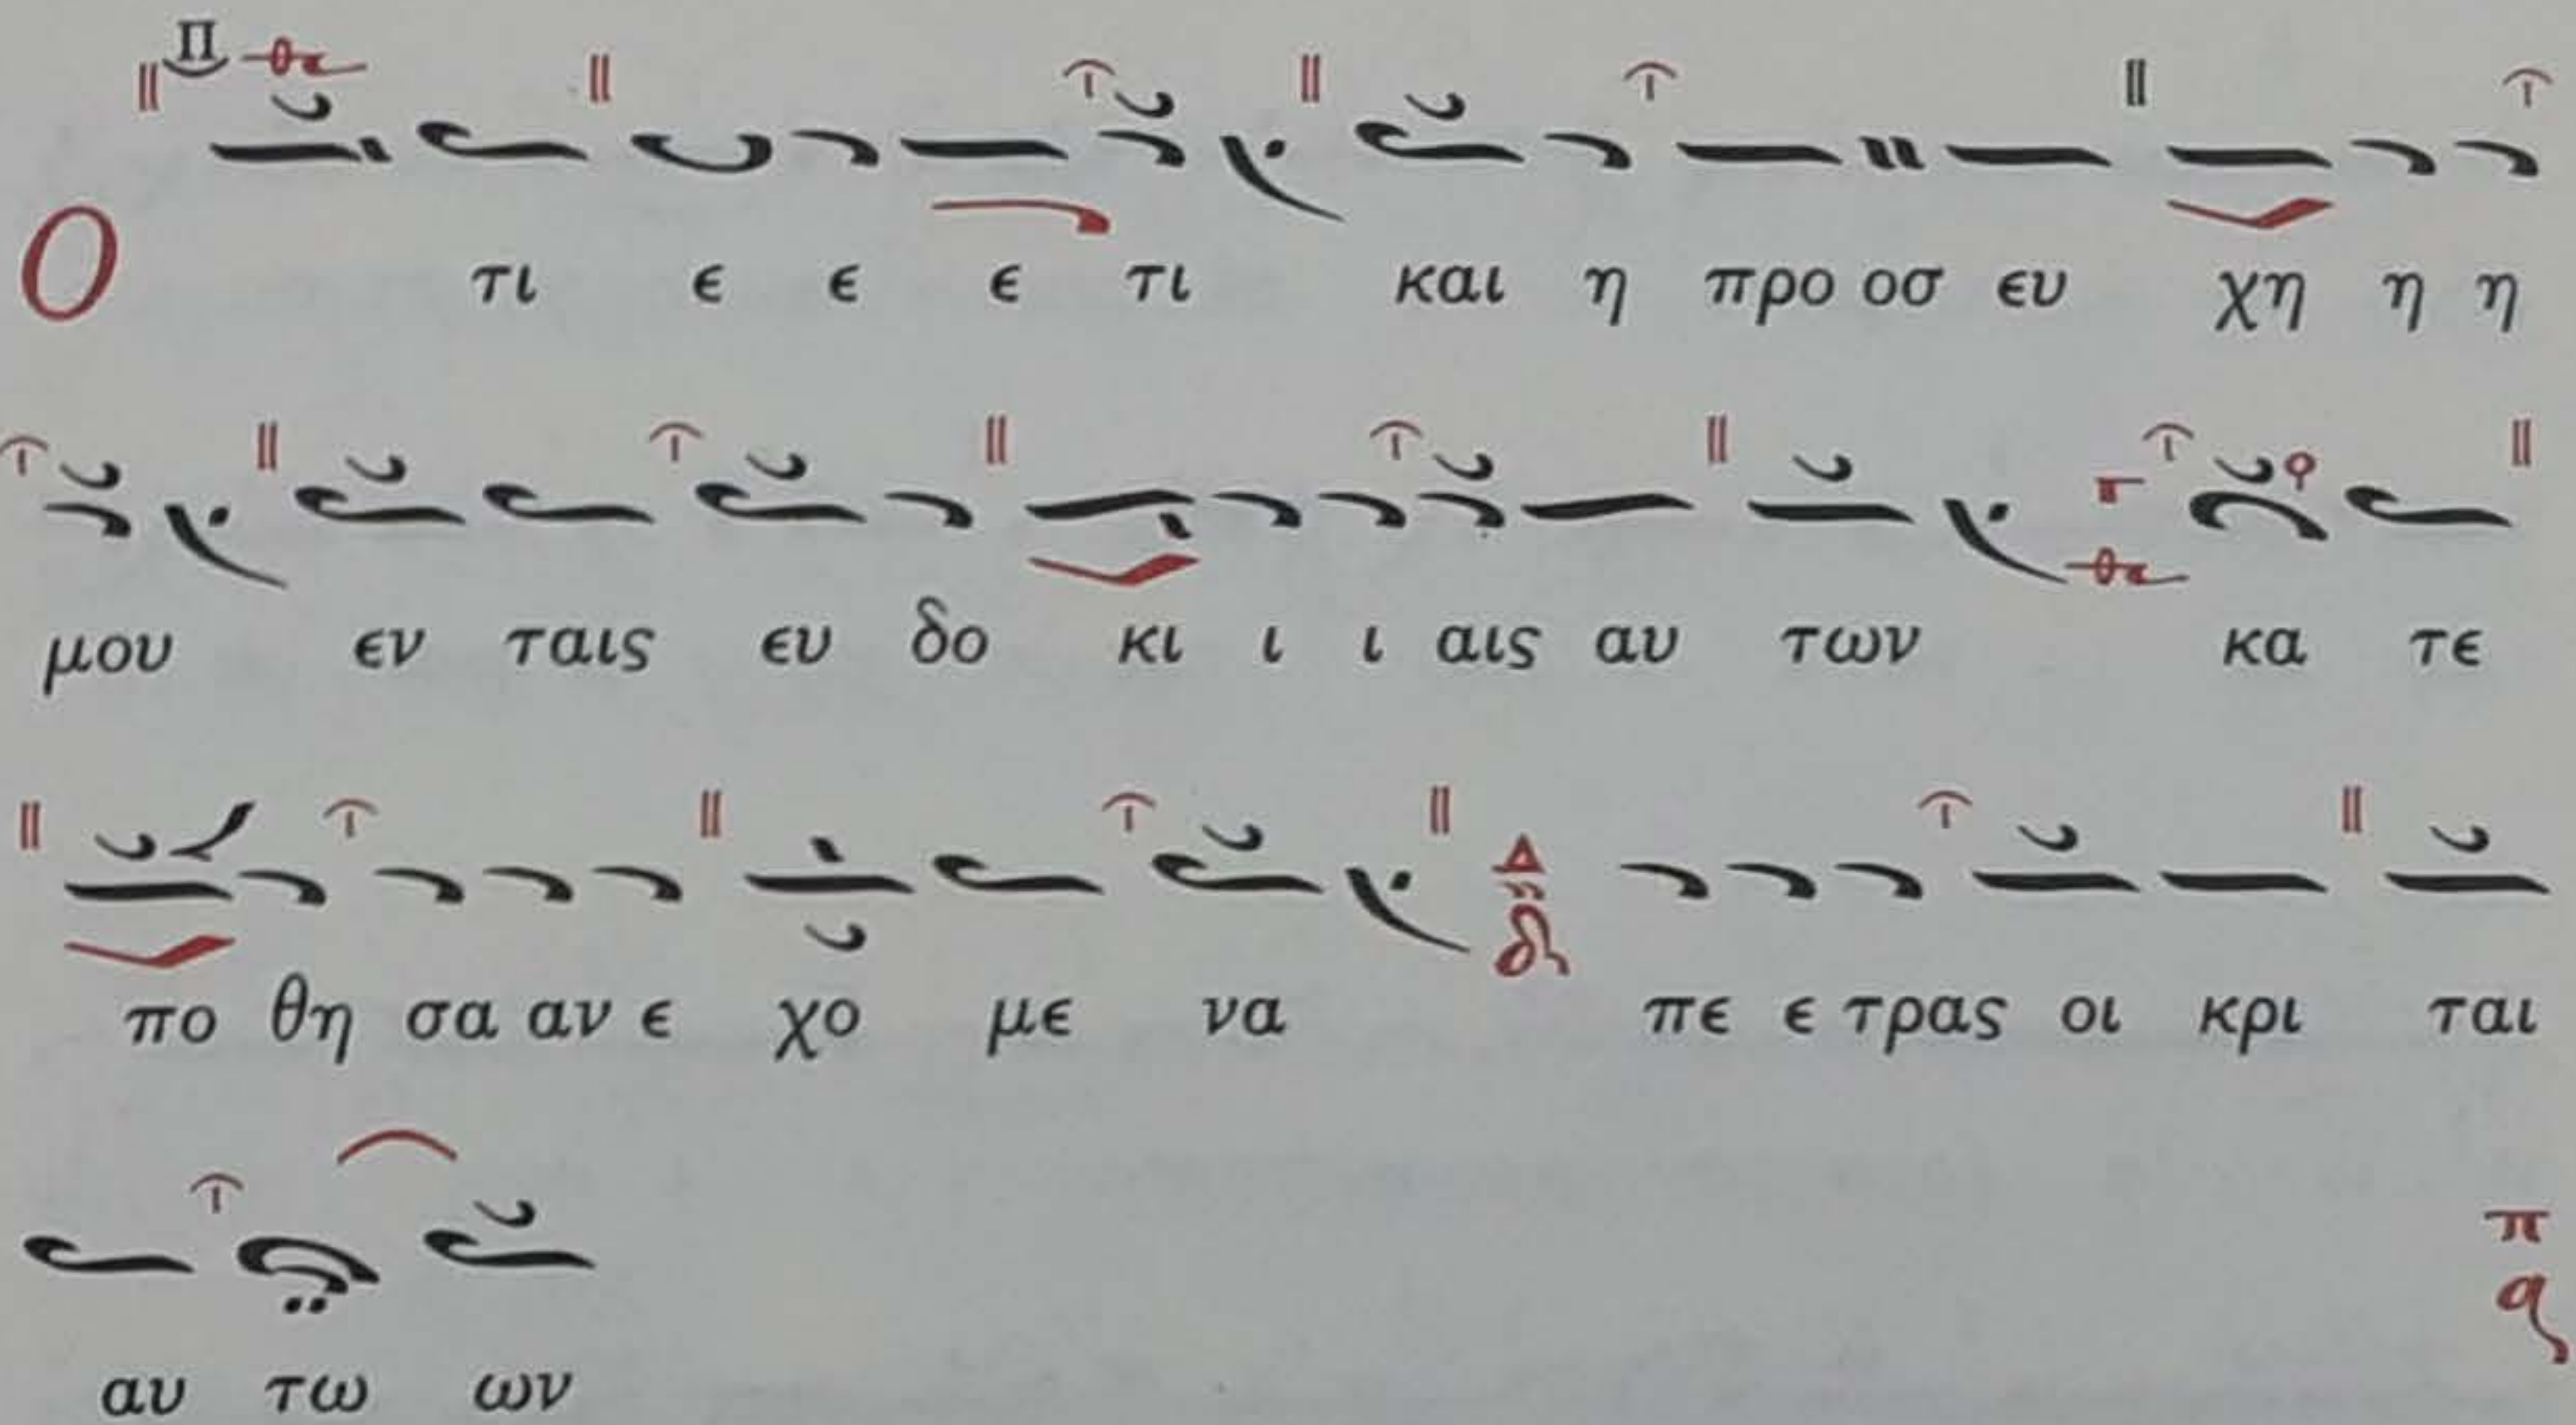 Π
Ο τι ε ε ε τι και η προ οσ ευ χη η η
μου εν ταις ευ δο κι ι ι αις αυ των κα τε
πο θη σα αν ε χο με να πε ε τρας οι κρι ται
αυ τω ων